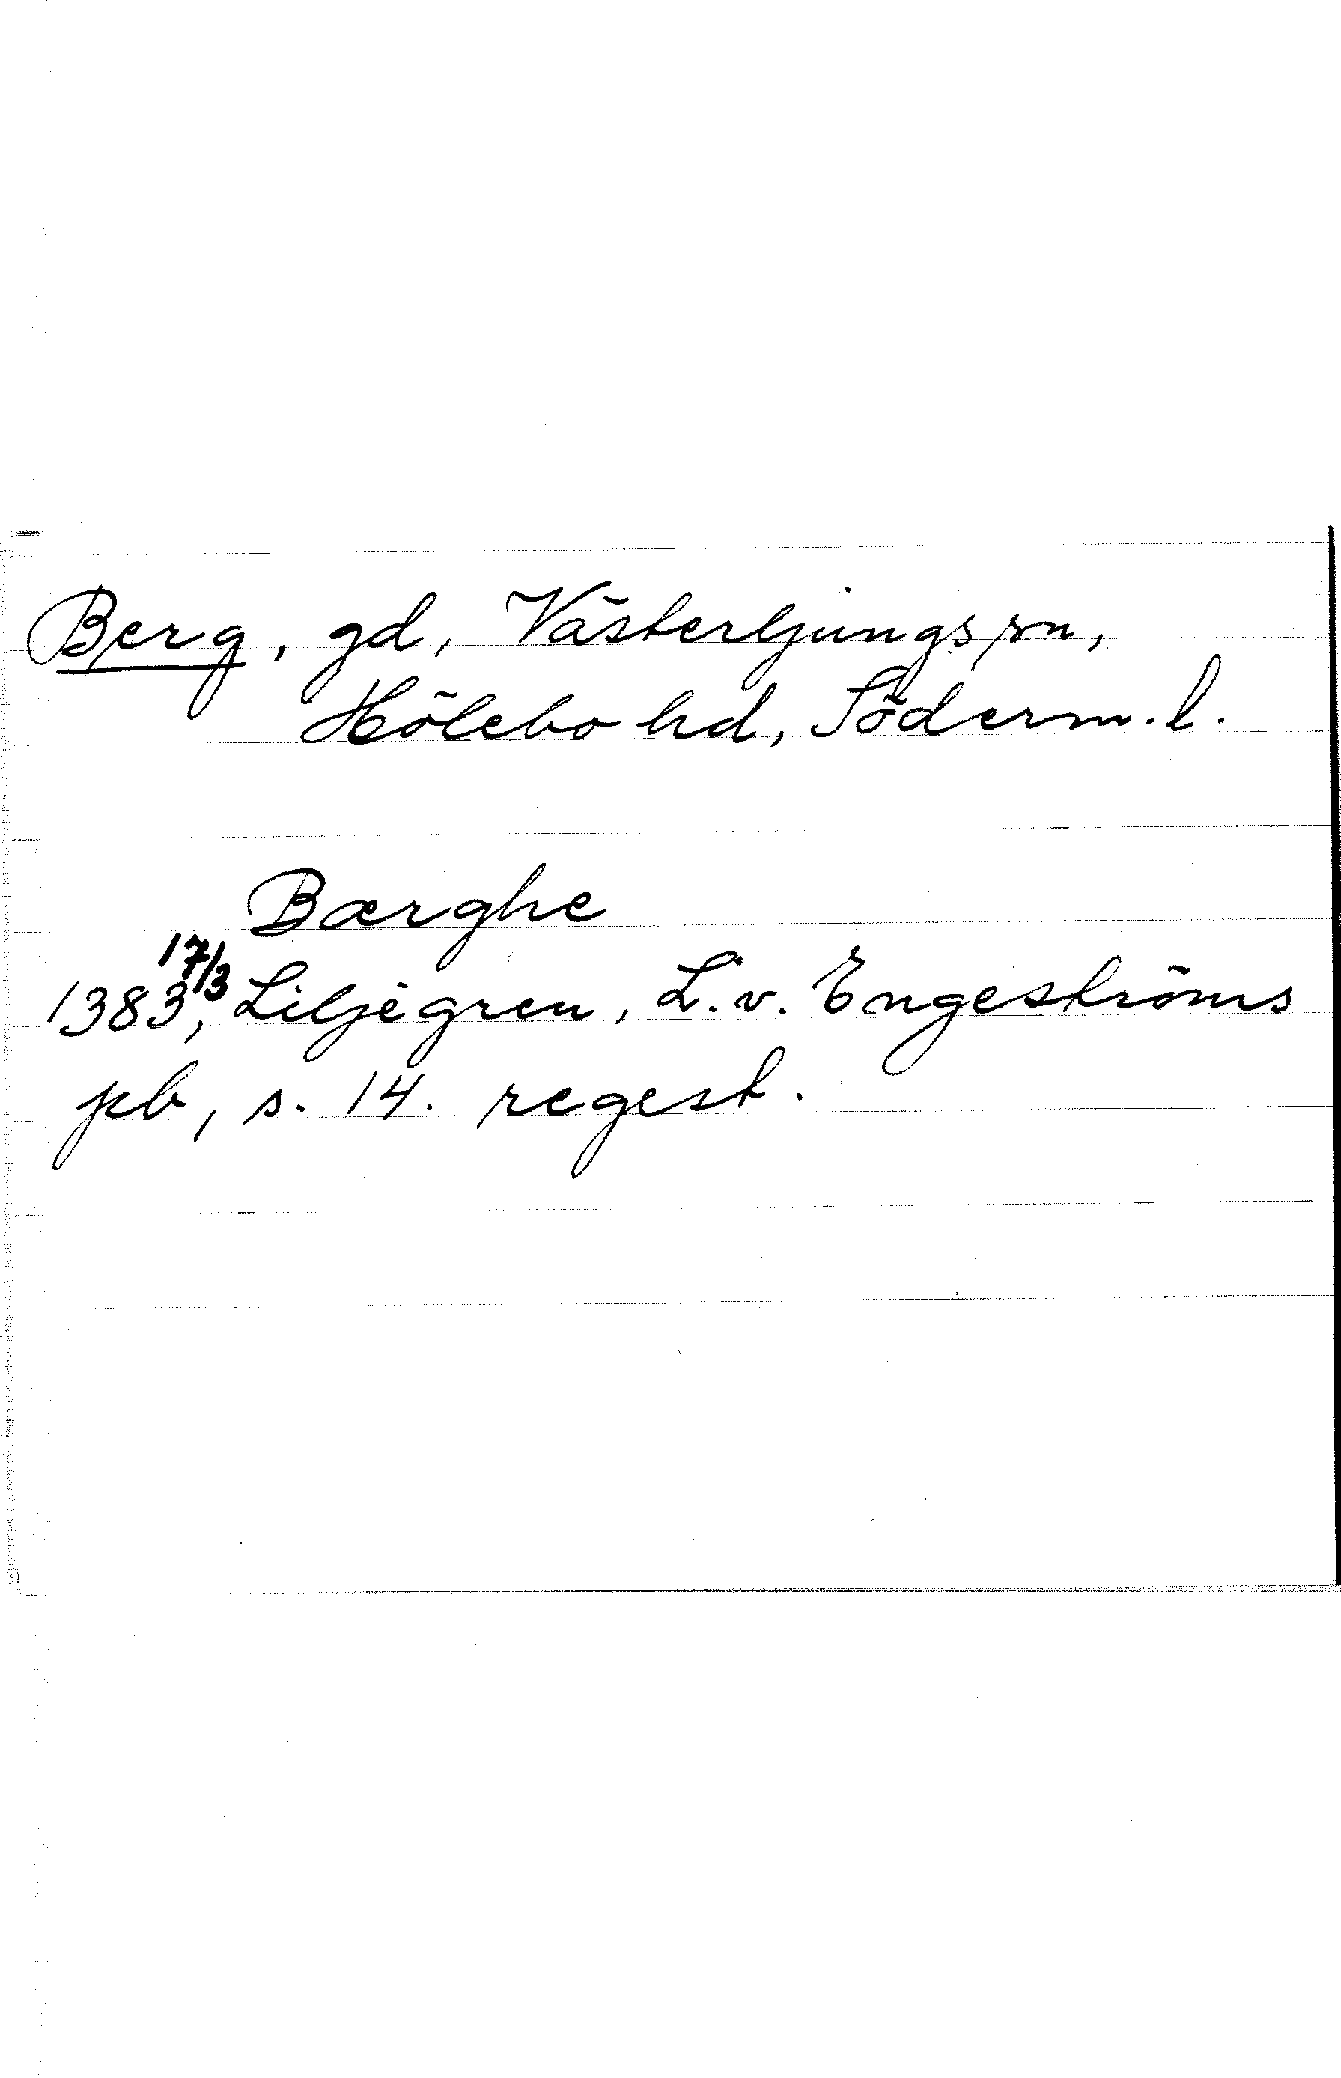 Berg, gd, Västerljungs sn,
Hölebo hd, Söderm.l.
Bærghe
1383 17/3, Liljegren, L. v. Engeströms
pb, s. 14. regest.